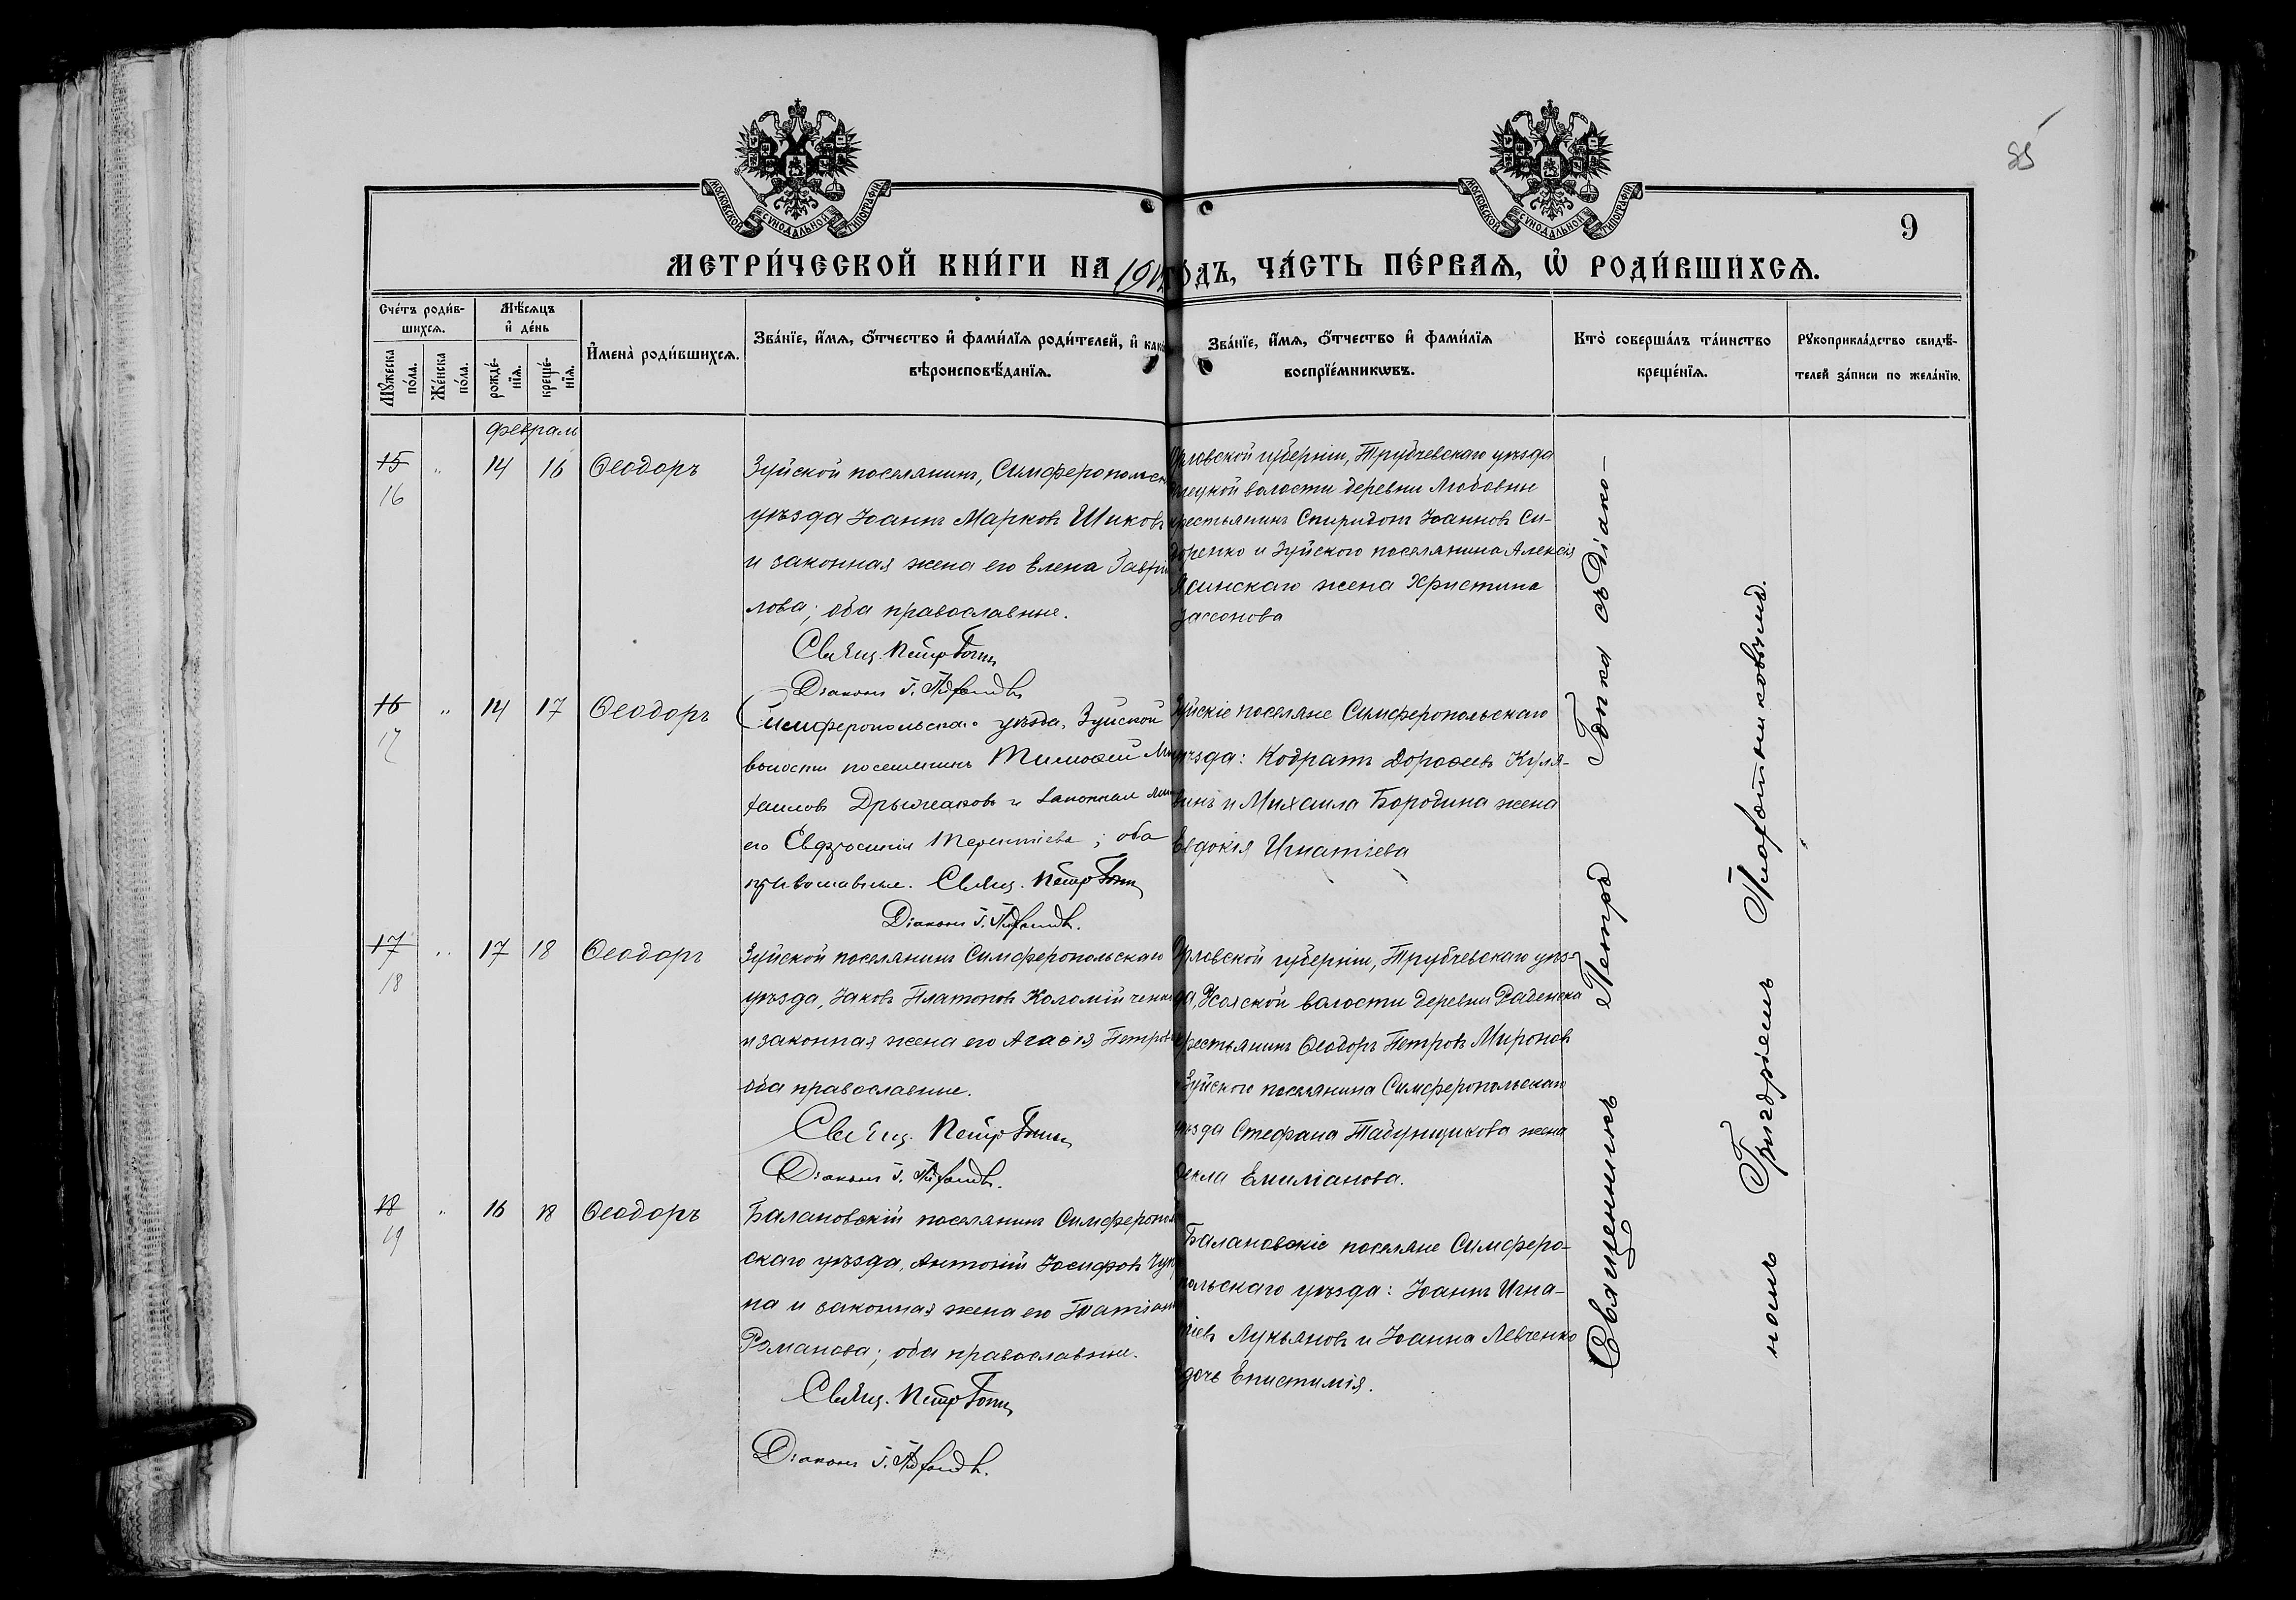 85
9
МОСКОВСКОЙ СѴНОДАЛЬНОЙ ТИПОГРАФІИ
МОСКОВСКОЙ СѴНОДАЛЬНОЙ ТИПОГРАФІИ
МЕТРИ́ЧЕСКОЙ КНИ́ГИ НА 191 ГО́ДЪ, ЧА́СТЬ ПЕ́РВАѦ, Ѡ҆ РОДИ́ВШИХСѦ.
Сче́тъ роди́в-
шихсѧ.
Мꙋ́жеска по́ла.
Же́нска по́ла.
Мѣ́сѧцъ
и҆ де́нь
рожде́-
нїѧ.
креще́-
нїѧ.
И҆мена̀ роди́вшихсѧ.
Зва́нїе, и҆́мѧ, ѻ҆́тчество и҆ фами́лїѧ роди́телей, и҆ како́
вѣроисповѣ́данїѧ.
Зва́нїе, и҆́мѧ, ѻ҆́тчество и҆ фами́лїѧ
воспрїе́мникѡвъ.
Кто̀ соверша́лъ та́инство
креще́нїѧ.
Рꙋкоприкла́дство свидѣ́-
телей за́писи по жела́нїю.
Февраль
15 " 14 16 Ѳеодоръ
16
Зуйской поселянинъ, Симферопольск
уѣзда Іоаннъ Марковъ Шиковъ
и законная жена его Елена Гаврі
лова; оба православные.
Свящ. Петр Гопи
Діаконъ
Орловской губерніи, Трубчевскаго уѣзда
волости деревни Любовны
крестьянинъ Спиридонъ Іоанновъ Си-
доренко и Зуйского поселянина Алексія
Ясинскаго жена Христина
16 " 14 17 Ѳеодоръ
17
Симферопольскаго уѣзда, Зуйской
волости поселянинъ Тимоѳей Ми
хаиловъ и законная жена
его Евфросинія Терентіева; оба
православные. Свящ. Петр Гопи
Діаконъ
Зуйскіе поселяне Симферопольскаго
уѣзда: Кодратъ Дороѳеевъ Куля-
винъ и Михаила Бородина жена
Евдокія Игнатіева
17 " 17 18 Ѳеодоръ
18
Зуйской поселянинъ Симферопольскаго
уѣзда, Іаковъ Платоновъ Коломійченко
и законная жена его Агаѳія Петрова
оба православные.
Свящ. Петр Гопи
Діаконъ
Орловской губерніи, Трубчевскаго уѣз-
да, Усохской волости деревни Радинска
крестьянинъ Ѳеодоръ Петровъ Мироновъ
Зуйского поселянина Симферопольскаго
уѣзда Стефана Табунщикова жена
Ѳекла Емиліанова.
18 " 16 18 Ѳеодоръ
19
Балановскій поселянинъ Симферополь
скаго уѣзда, Антоній Іосифовъ Чуп
на и законная жена его Татіана
Романова; оба православные.
Свящ. Петр Гопи
Діаконъ
Балановскіе поселяне Симферо-
польскаго уѣзда: Іоаннъ Игна-
тіевъ Лукьяновъ и Іоанна Левченко
дочь Епистимія.
Священникъ Петръ съ Діако-
номъ Григоріемъ